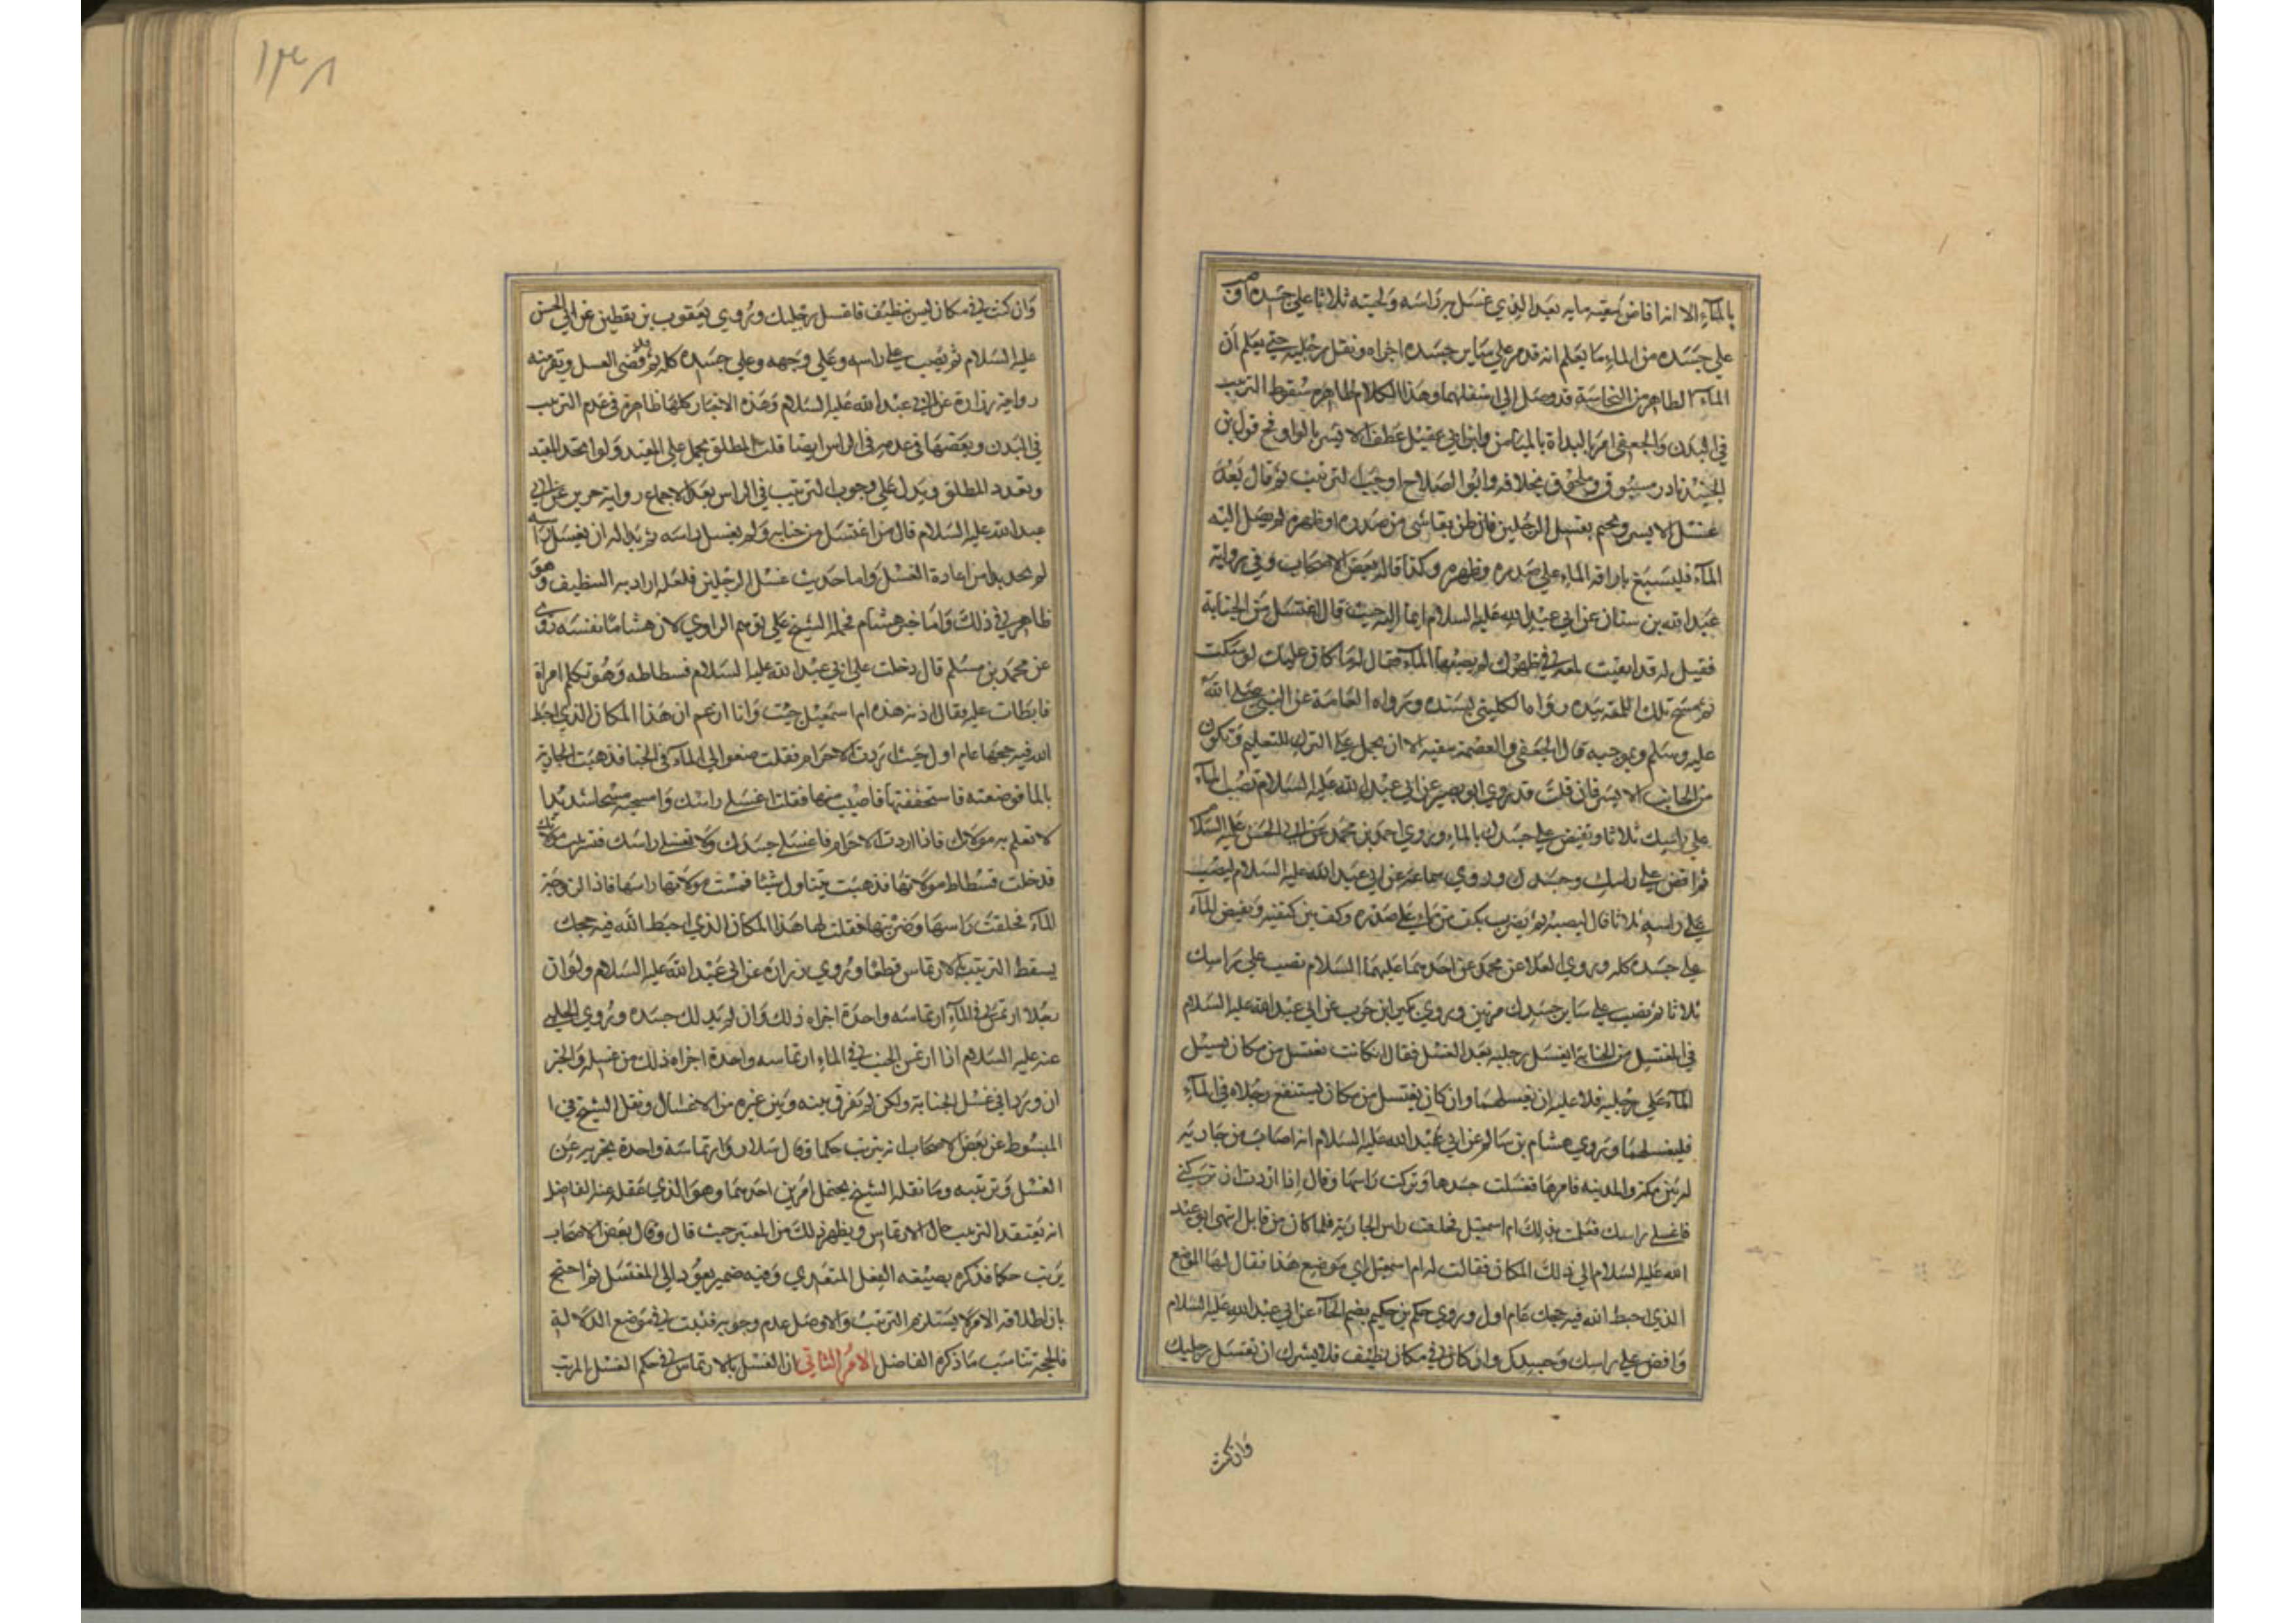 بالماء الا انه افاض بقية مايه بعد الذي غسل به راسه ولحيته ثلاثا على جسده او
على جسده من الماء ما يعلم انه قد مر على ساير جسده اجزاه ونقل رجليه حتى يعلم ان
الماء الطاهر من النجاسة قد وصل الى اسفلهما وهذا الكلام ظاهره سقوط الترتيب
في البدن والجعفي امر بالبداة بالميامن وابن ابي عقيل عطف الايسر بالواو فح قول ابن
الجنيد نادر مسبوق وملحوق بخلافه وابو الصلاح اوجب الترتيب ثم قال بعد
غسل الايسر ويختم بغسل الرجلين فان ظن بقا شي من صدره او ظهره لم يصل اليه
الماء فليسبغ باراقة الماء على صدره وظهره وكذا قاله بعض الاصحاب وفي رواية
عبد الله بن سنان عن ابي عبد الله عليه السلام ايما اليه حيث قال اغتسل من الجنابة
فقيل له قد ابقيت لمعة في ظهرك لم يصبها الماء فقال له ما كان عليك لو سكت
ثم مسح تلك اللمعة بيده رواها الكليني بسنده ورواه العامة عن النبي صلى الله
عليه وسلم وبوجبه قال الجعفي والعصمة تنفيه الا ان يحمل على الترك للتعليم وتكون
من الجانب الايسر فان قلت قد روي ابو بصير عن ابي عبد الله عليه السلام تصب الماء
على راسك ثلاثا وتفيض على جسدك بالماء وروي احمد بن محمد عن ابي الحسن عليه السلام
ثم افض على راسك وجسدك وروي سماعة عن ابي عبد الله عليه السلام ليصب
على راسه ثلاثا قال ليصبه ثم يضرب بكف من ماء على صدره وكف بين كتفيه ويفيض الماء
على جسده كله وروي العلا عن محمد عن احدهما عليهما السلام تصب على راسك
ثلاثا ثم تصب على ساير جسدك مرتين وروي بكير ابن كرب عن ابي عبد الله عليه السلام
في المغتسل من الجنابة ايغسل رجليه بعد الغسل فقال ان كانت يغتسل من مكان يسيل
الماء على رجليه فلا عليه ان يغسلهما وان كان يغتسل من مكان يستنقع رجلاه في الماء
فليغسلهما وروي هشام بن سالم عن ابي عبد الله عليه السلام انه اصاب من جارية
له بين مكة والمدينة فامرها فغسلت جسدها وتركت راسها وقال اذا اردت ان تركبي
فاغسلي راسك فعلمت بذلك ام اسمعيل فحلقت راس الجارية فلما كان من قابل انتهى ابو عبد
الله عليه السلام الى ذلك المكان فقالت له ام اسمعيل اي موضع هذا فقال لها الموضع
الذي احبط الله فيه حجك عام اول وروي حكم بن حكيم بضم الحاء عن ابي عبد الله عليه السلام
وافض على راسك وجسدك وان كان في مكان نظيف فلا يضرك ان تغتسل رجليك
وان كنت
١٣٨
وان كنت في مكان ليس بنظيف فاغسل رجليك وروي يعقوب بن يقطين عن ابي الحسن
عليه السلام ثم يصب على راسه وعلى وجهه وعلى جسده كله ثم قد قضى الغسل ويقرب منه
رواية زرارة عن ابي عبد الله عليه السلام وهذه الاخبار كلها ظاهرة في عدم الترتيب
في البدن وبعضها في عدمه في الراس ايضا قلت المطلق يحمل على المقيد ولو اتحد المقيد
وتعدد المطلق ويدل على وجوب الترتيب في الراس بعد الاجماع رواية حريز عن ابي
عبد الله عليه السلام قال من اغتسل من جنابة ولم يغسل راسه ثم بدا له ان يغسل راسه
لم يجد بدا من اعادة الغسل واما حديث غسل الرجلين فلعله اراد به التنظيف وهو
ظاهر في ذلك واما خبر هشام فحمله الشيخ على توهم الراوي لان هشاما نفسه روى
عن محمد بن مسلم قال دخلت على ابي عبد الله عليه السلام فسطاطه وهو يكلم امراة
فابطات عليه فقال ادنه هذه ام اسمعيل جيت وانا ازعم ان هذا المكان الذي احبط
الله فيه حجها عام اول حيث اردت الاحرام فقلت ضعوا الي الماء في الخبا فذهبت الجارية
بالما فوضعته فاستخففتها فاصبت منها فقلت اغسلي راسك وامسحيه مسحا شديدا
لا تعلم به مولاتك فاذا اردت الاحرام فاغسلي جسدك ولا تغسلي راسك فتستريب مولاتك
فدخلت فسطاط مولاتها فذهبت تتناول شيئا فمست مولاتها راسها فاذا لزوجة
الماء فحلقت راسها وضربتها فقلت لها هذا المكان الذي احبط الله فيه حجك
يسقط الترتيب بالارتماس قطعا وروي زرارة عن ابي عبد الله عليه السلام ولو ان
رجلا ارتمس في الماء ارتماسه واحدة اجزاه ذلك وان لم يدلك جسده وروي الحلبي
عنه عليه السلام اذا ارتمس الجنب في الماء ارتماسه واحدة اجزاه ذلك من غسله والخبر
ان وردا في غسل الجنابة ولكن لم يفرق بينه وبين غيره من الاغسال ونقل الشيخ في ا
المبسوط عن بعض الاصحاب انه يترتب حكما وقال سلار وارتماسة واحدة يجزيه عن
الغسل وترتيبه وما نقله الشيخ يحتمل امرين احدهما وهو الذي عقله عنه الفاضل
انه يعتقد الترتيب حال الارتماس ويظهر ذلك من المعتبر حيث قال وقال بعض الاصحاب
يرتب حكما فذكره بصيغه الفعل المتعدي وفيه ضمير يعود الى المغتسل ثم احتج
بان اطلاقه الامر لا يستلزم الترتيب والاصل عدم وجوبه فثبت في موضع الدلالة
فالحجة تناسب ما ذكره الفاضل الامر الثاني ان الغسل بالارتماس في حكم الغسل المرتب